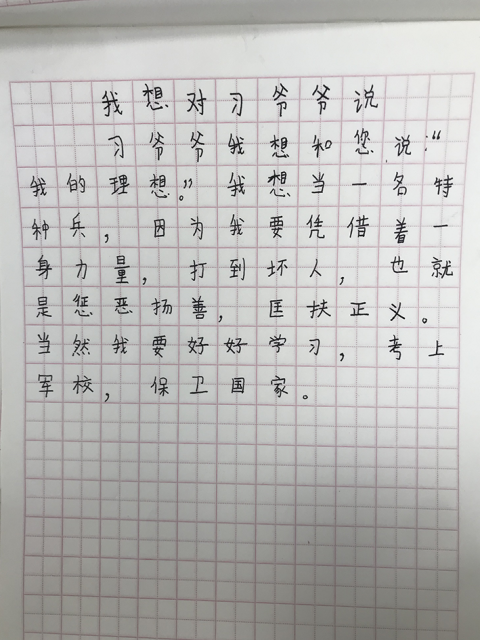 我想对习爷爷说
习爷爷我想和您说:“
我的理想。”我想当一名特
种兵,因为我要凭借着一
身力量,打到坏人,也就
是惩恶扬善,匡扶正义。
当然我要好好学习,考上
军校,保卫国家。